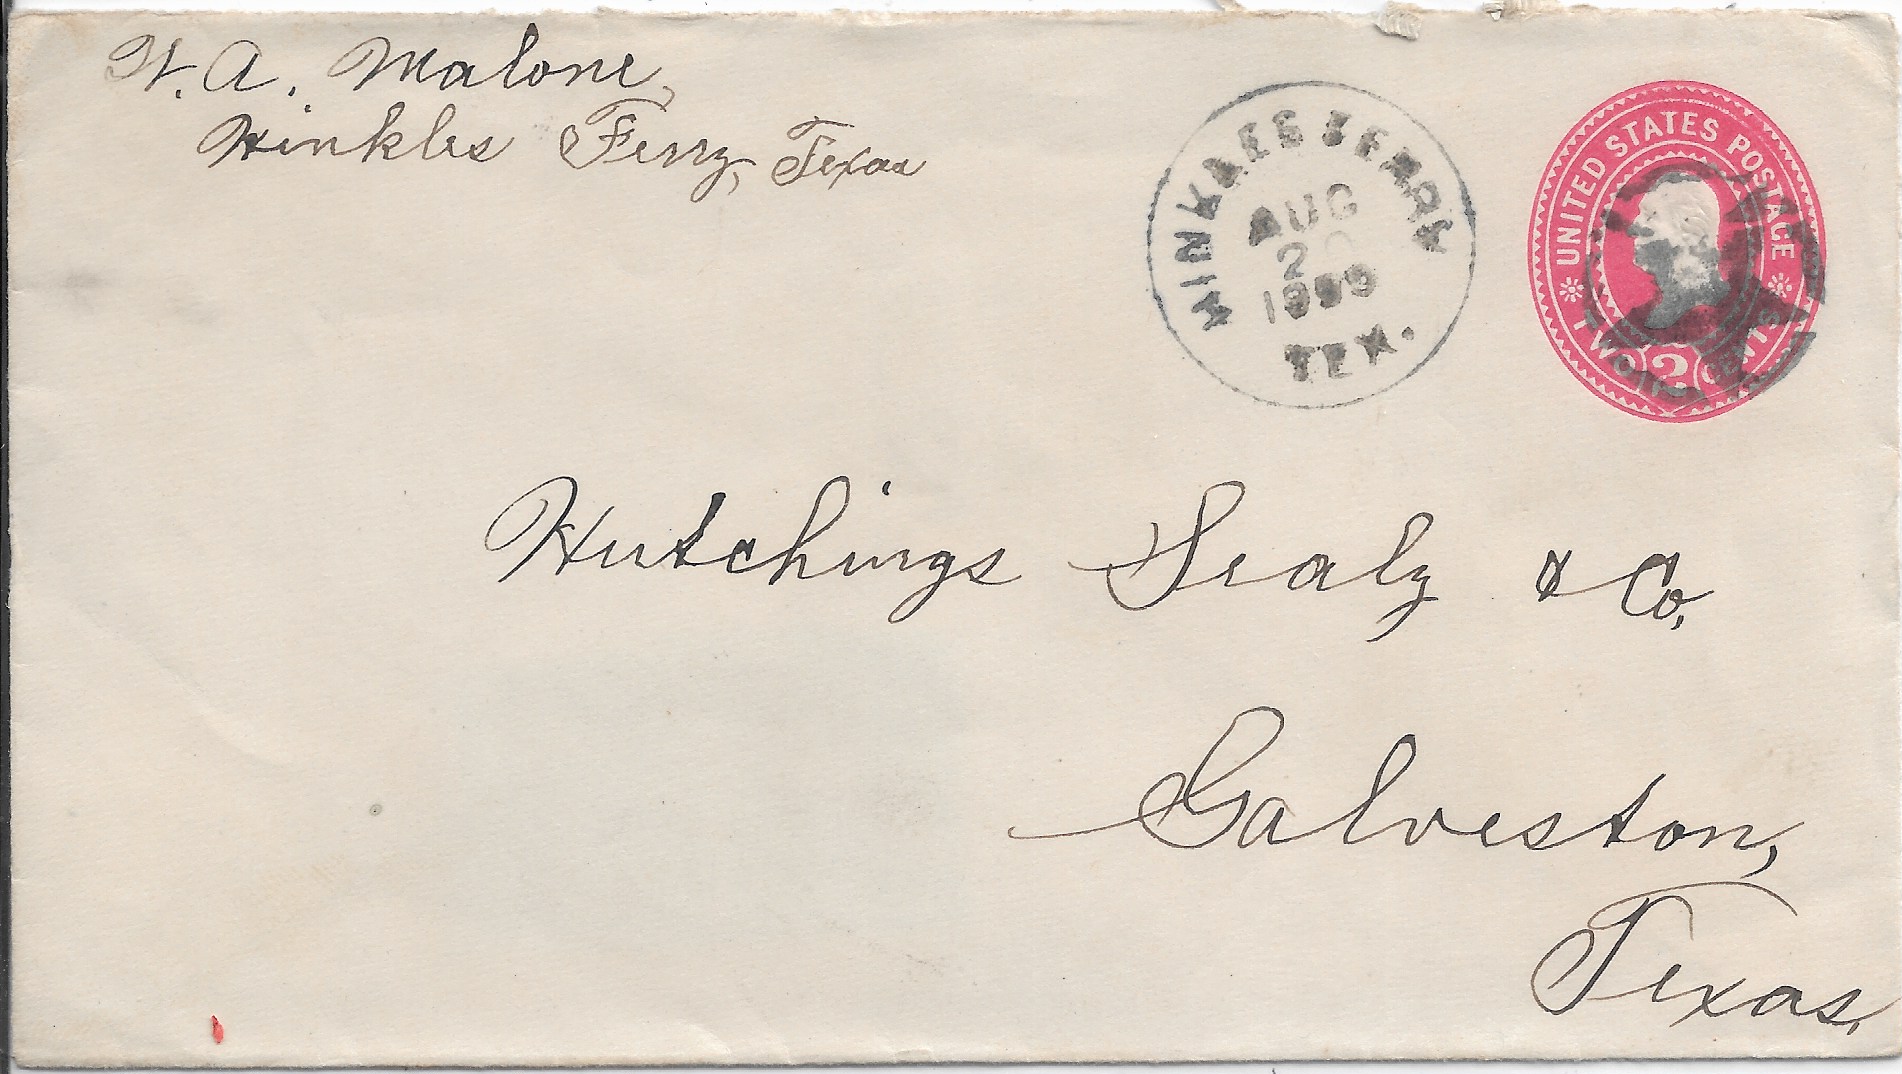 W. A. Malone,
Winkles Ferry, Texas
AUG
1899
TEX.
UNITED STATES POSTAGE
TWO 2 CENTS
Hutchings Sealy & Co,
Galveston,
Texas,